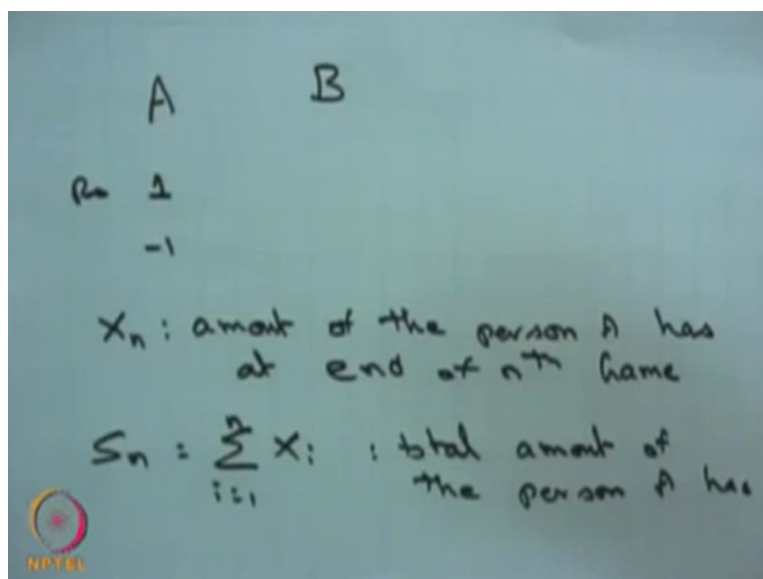 A B
Rs 1
-1
Xn : amout of the person A has
at end of nth Game
Sn = n∑i=1 Xi : total amout of
the person A has
NPTEL